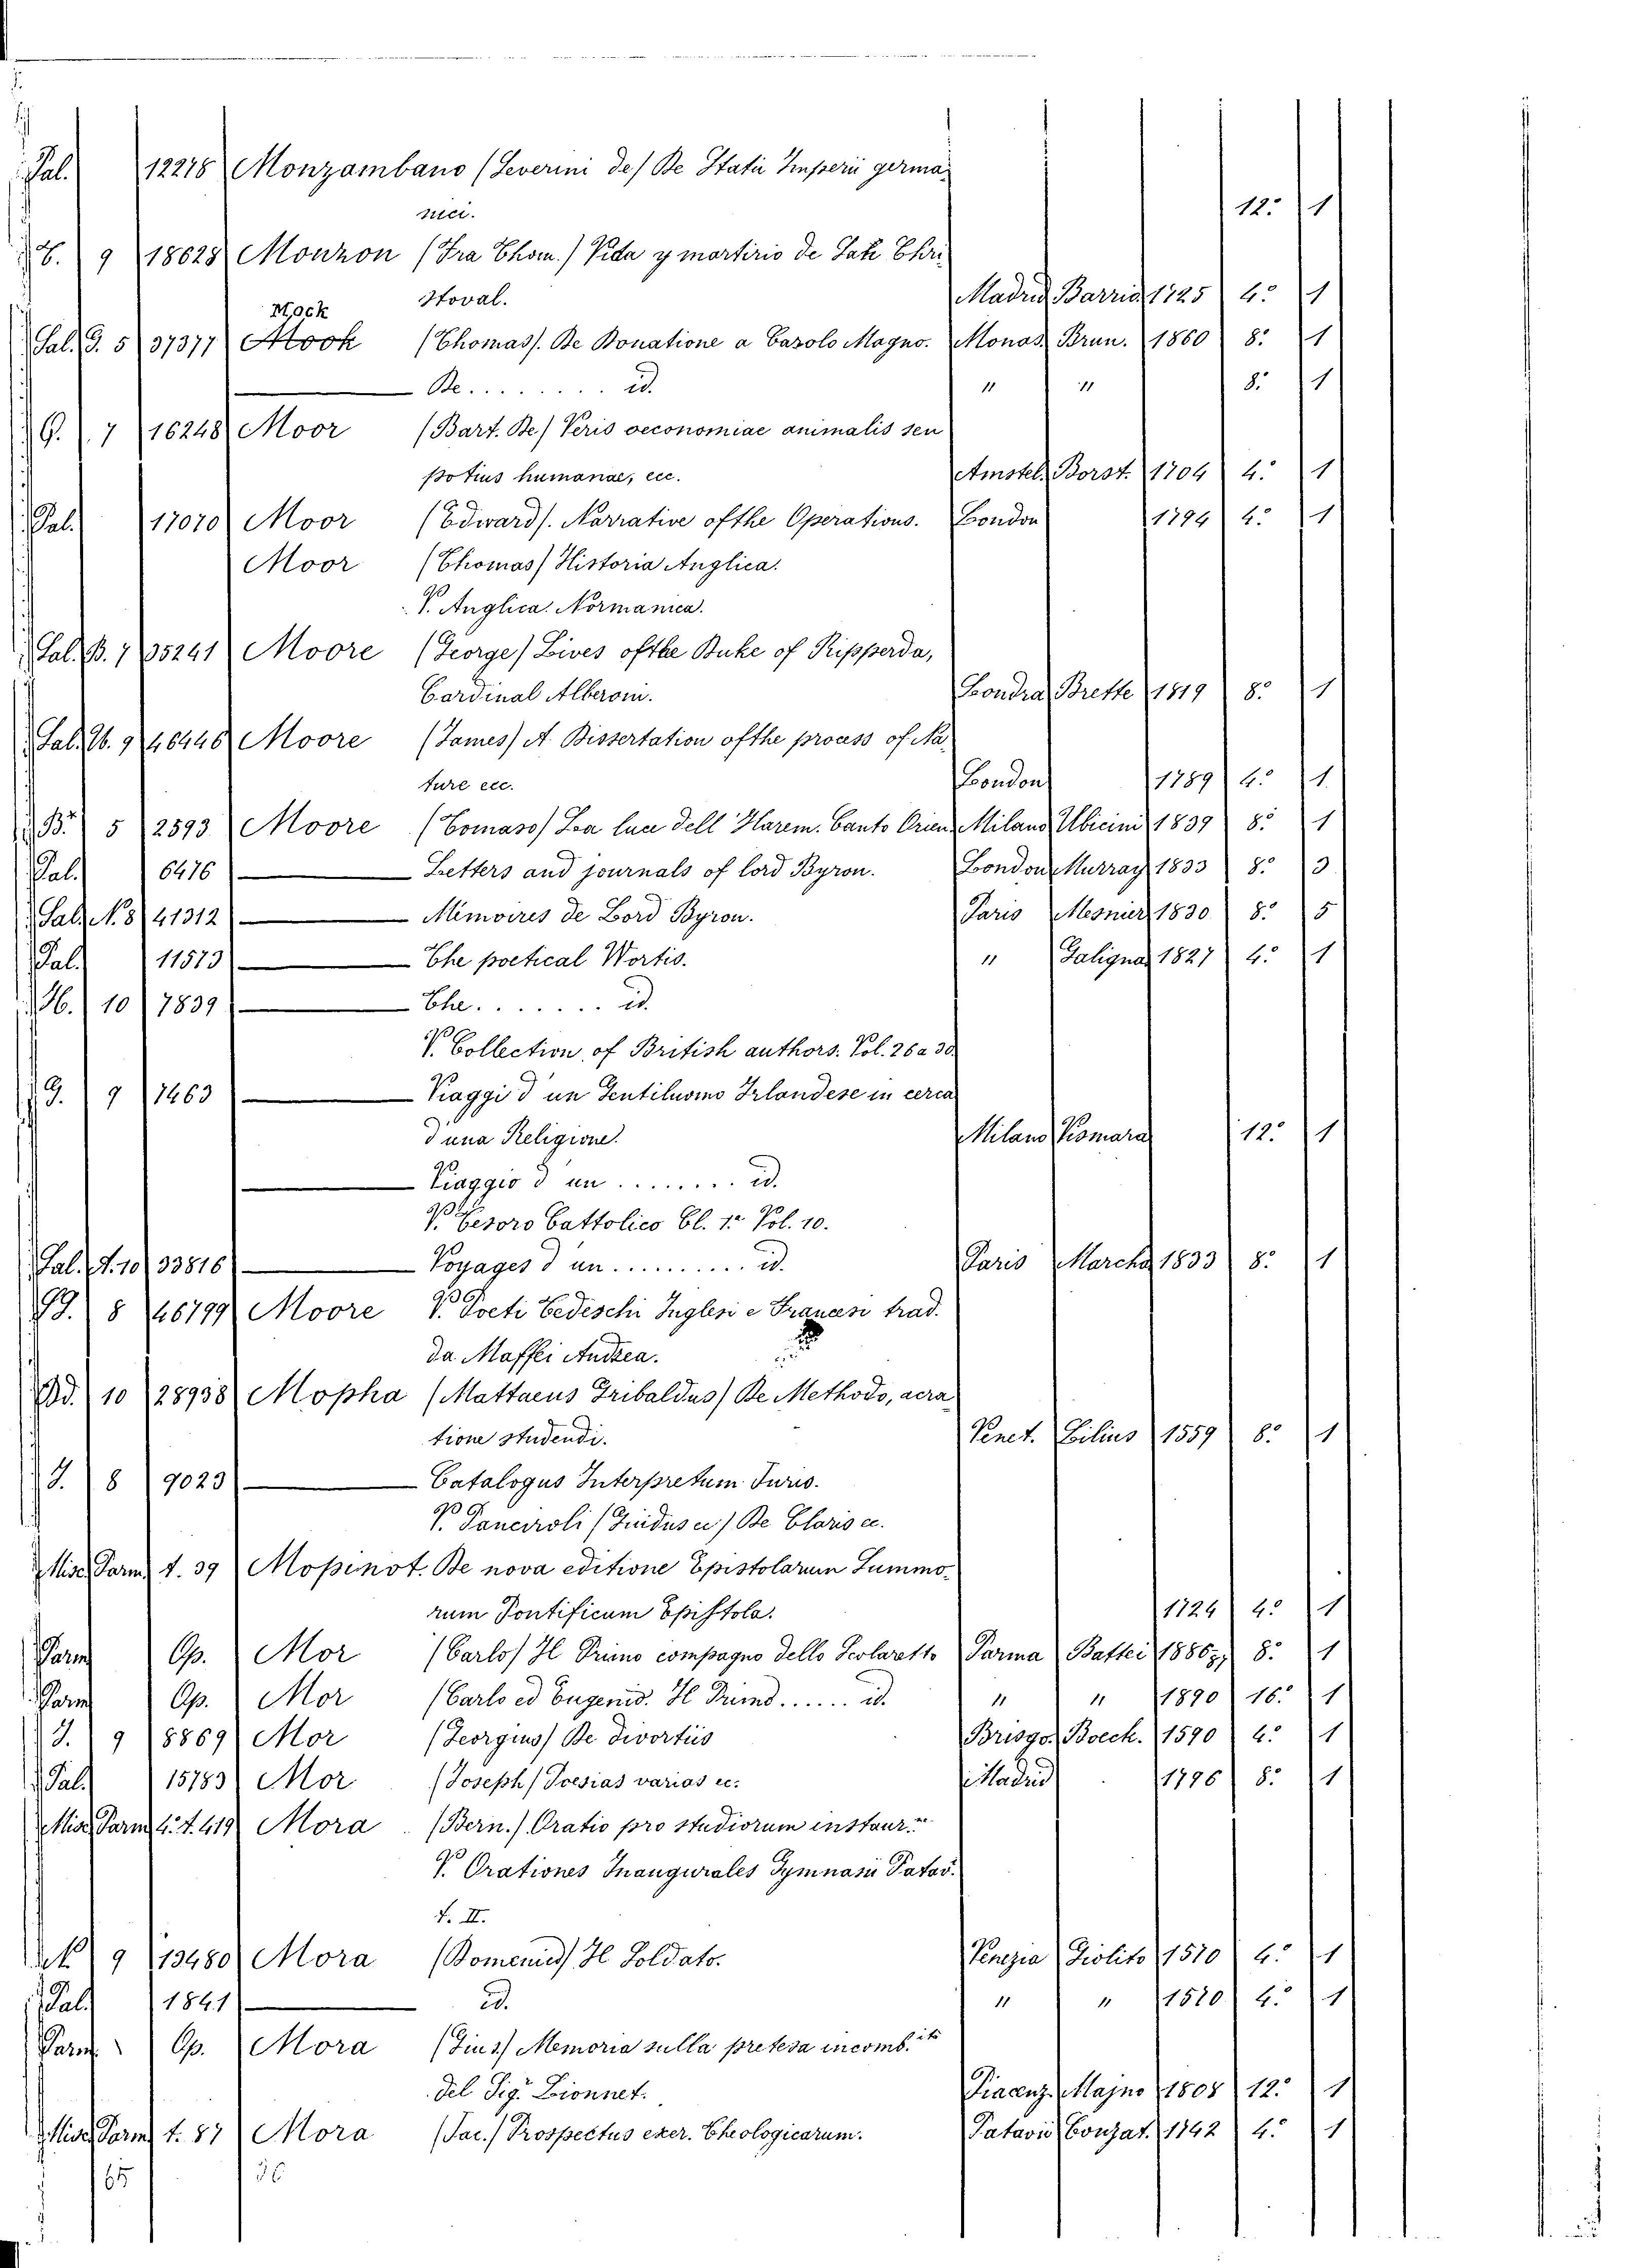 Pal. 12276 Monzambano (Severini de) De Statu Imperii germa-
nici. 12.° 1
H. 9 18628 Monzon (Fra Thom.) Vida y martirio de Sate Chri
stoval. Madrid Barrio 1725 4.° 1
Mock
Sal. G. 5 37377 Mook (Thomas). De Donatione a Carolo Magno. Monas. Brun. 1860 8.° 1
De ........ id. " " 8.° 1
G. 7 16248 Moor (Bart. De) Veris oeconomiae animalis seu
potius humanae, ecc. Amstel. Borst. 1704 4.° 1
Pal. 17070 Moor (Edward). Narrative ofthe Operations. London 1794 4.° 1
Moor (Thomas) Historia Anglica.
V. Anglica Normanica.
Sal. B. 7 35241 Moore (George) Lives ofthe Duke of Ripperda,
Cardinal Alberoni. Londra Brette 1819 8.° 1
Sal. H. 9 46446 Moore (James) A Dissertation ofthe process of Na-
ture ecc. London 1789 4.° 1
B. 5 2593 Moore (Tomaso) La luce dell Harem. Canto Orien. Milano Ubicini 1839 8.° 1
Pal. 6476 Letters and journals of lord Byron. London Murray 1833 8.° 3
Sal. N. 8 41312 Mémoires de Lord Byron. Paris Mesnier 1830 8.° 5
Pal. 11573 The poetical Wortis. " Galigna. 1827 4.° 1
H. 10 7839 The ....... id.
V. Collection of British authors. Vol. 26 a 30
G. 9 7463 Viaggi d'un Gentiluomo Irlandese in cerca
d'una Religione. Milano Pomara 12.° 1
Viaggio d'un ........ id.
V. Tesoro Cattolico Cl. 1.a Vol. 10.
Sal. A. 10 33816 Voyages d'un ......... id. Paris Marcha 1833 8.° 1
G. 8 46799 Moore V. Poeti Tedeschi Inglesi e Francesi trad.
da Maffei Andrea.
Dd. 10 28938 Mopha (Mattaeus Gribaldus) De Methodo, acra
tione studendi. Venet. Lilius 1559 8.° 1
J. 8 9023 Catalogus Interpretum Juris.
V. Panciroli (Guidus ec) De Claris ec.
Misc. Parm. t. 39 Mopinot. De nova editione Epistolarum Summo-
rum Pontificum Epistola. 1724 4.° 1
Parm. Op. Mor (Carlo) Il Primo compagno dello Scolaretto Parma Battei 1886 8.° 1
Parm. Op. Mor (Carlo ed Eugenio. Il Primo ...... id. " " 1890 16.° 1
J. 9 8869 Mor (Georgius) De divortiis Brisgo. Boeck. 1590 4.° 1
Pal. 15783 Mor (Joseph) Poesias varias ec. Madrid 1796 8.° 1
Misc. Parm. 4.° t. 419 Mora (Bern.) Oratio pro studiorum instaur.
V. Orationes Inaugurales Gymnasii Patav.
t. II.
K 9 13480 Mora (Domenico) Il Soldato. Venezia Giolito 1570 4.° 1
Pal. 1841 id. " " 1570 4.° 1
Parm. Op. Mora (Gius) Memoria sulla pretesa incomb.ite
del Sig. Lionnet. Piacenz. Majno 1808 12.° 1
Misc. Parm. t. 87 Mora (Jac.) Prospectus exer. Theologicarum. Patavii Conzat. 1742 4.° 1
65 36